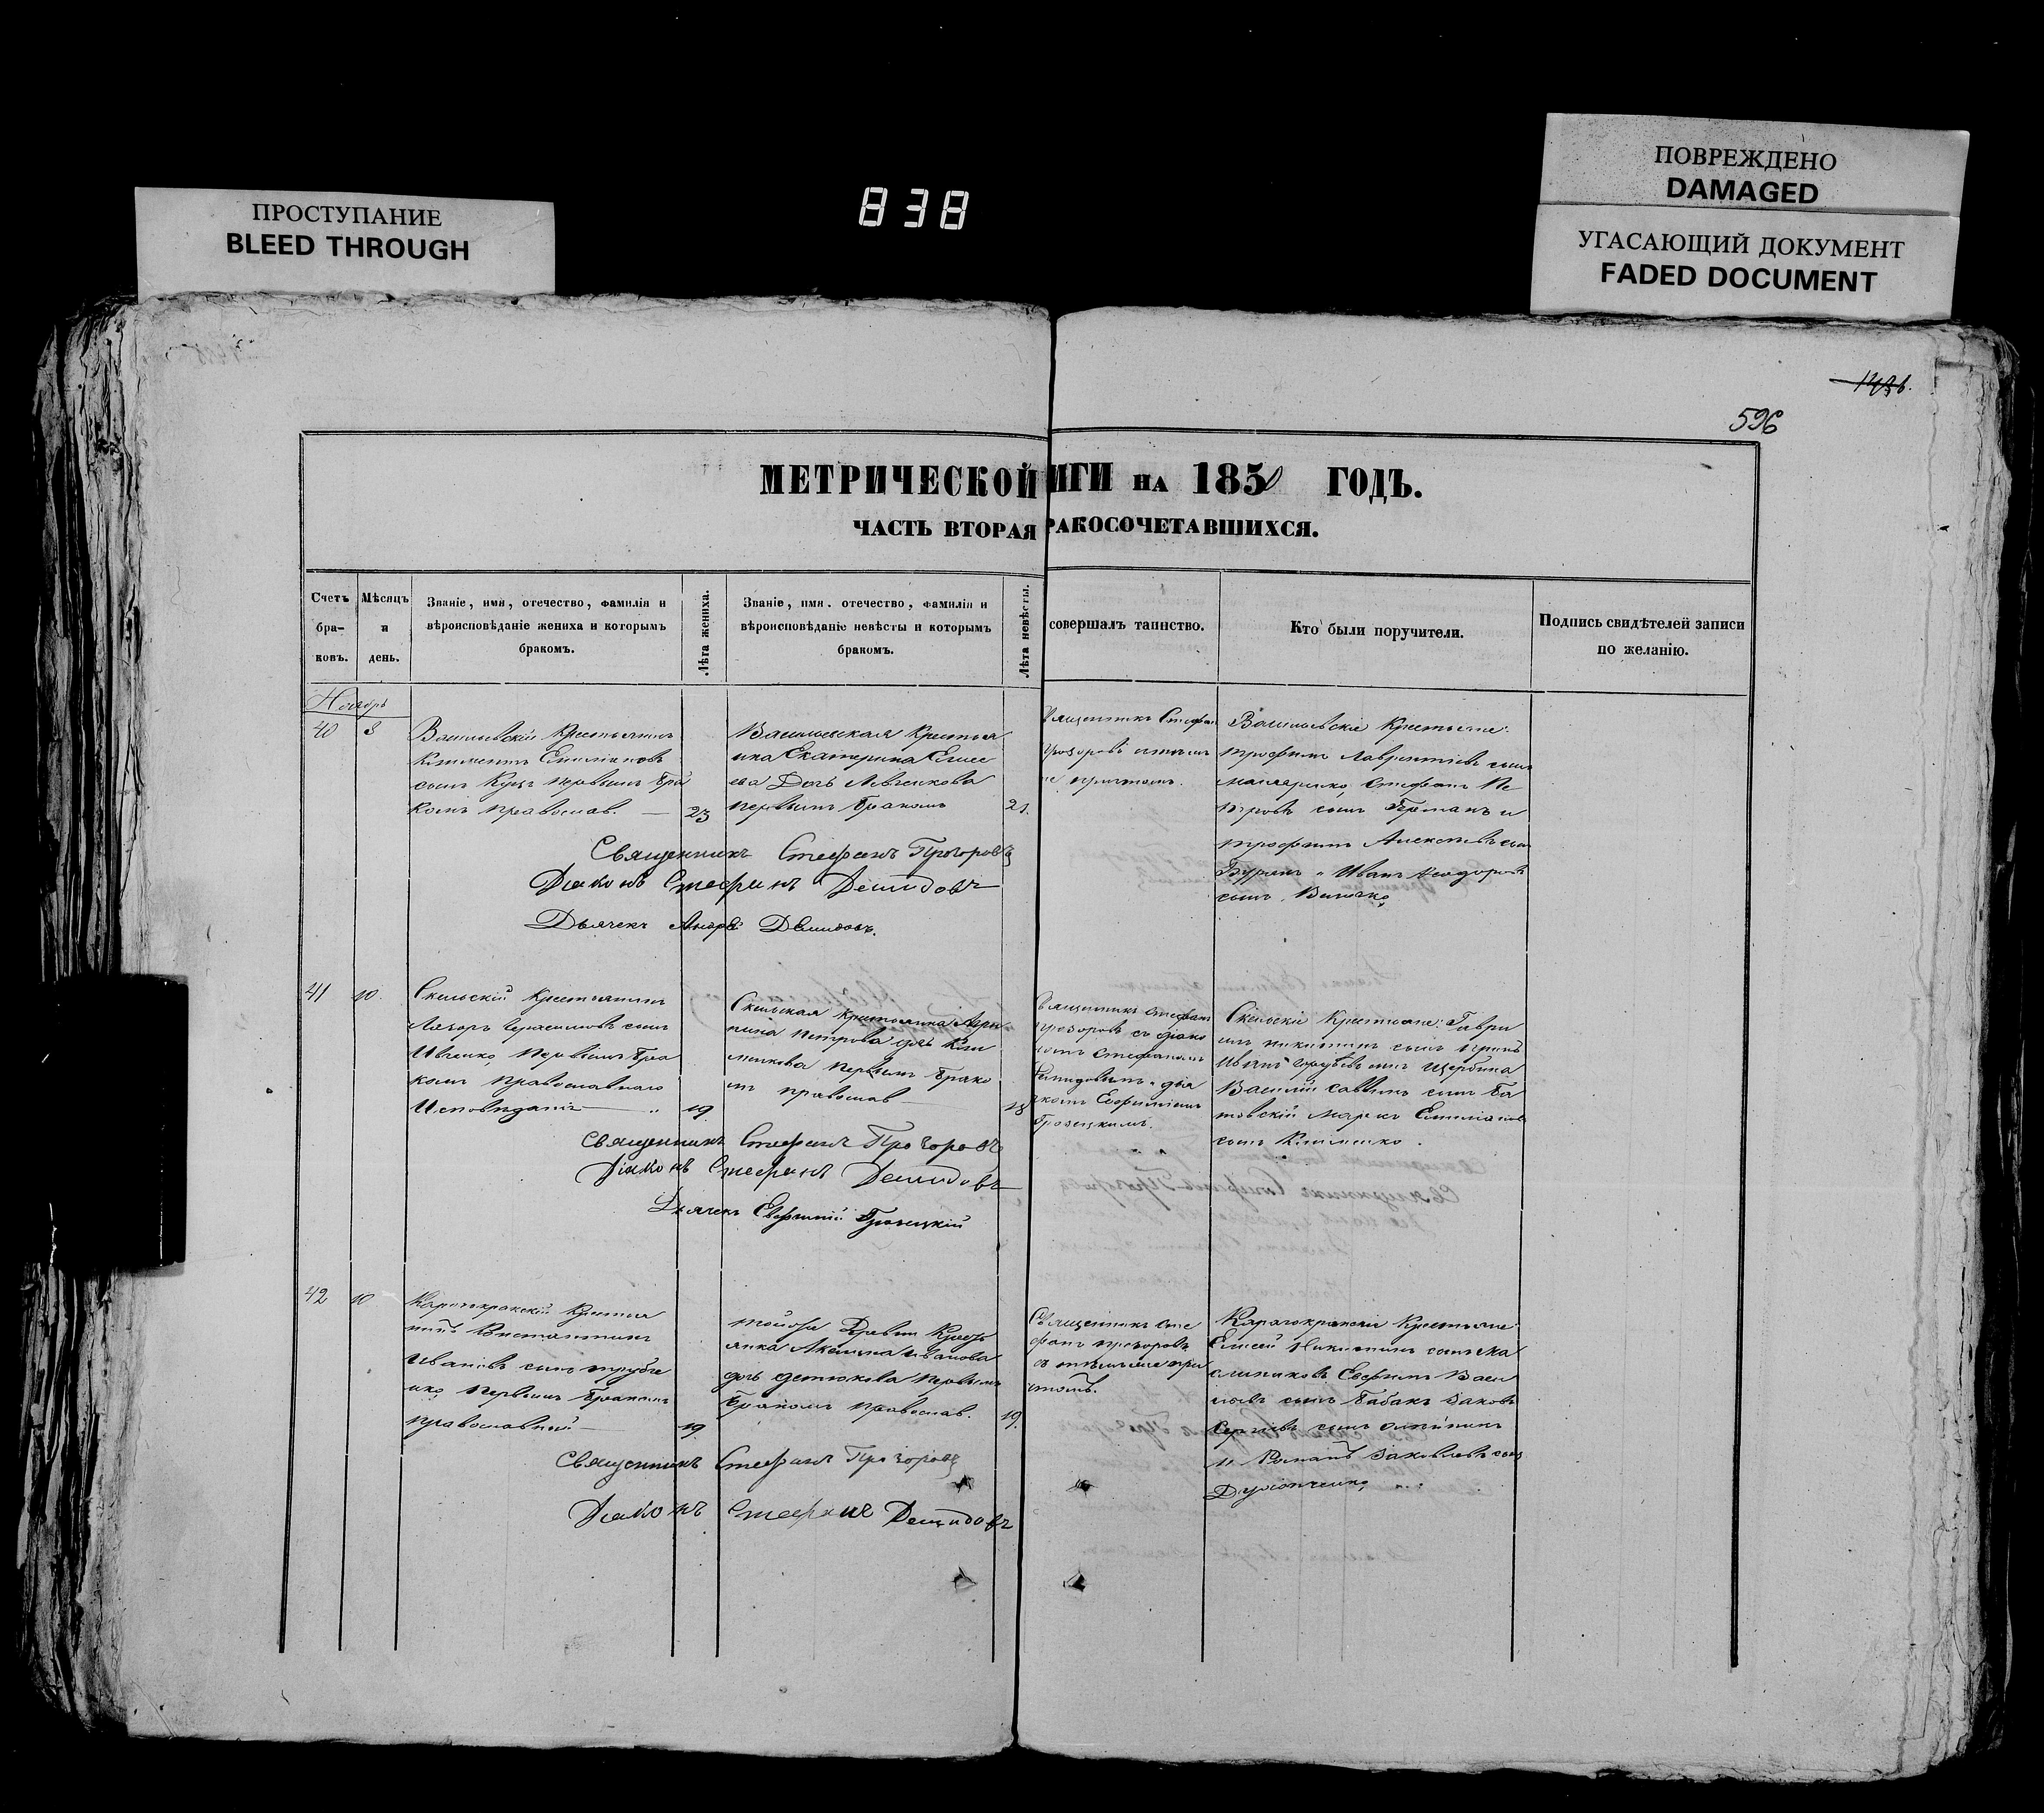 ПРОСТУПАНИЕ
BLEED THROUGH
838
ПОВРЕЖДЕНО
DAMAGED
УГАСАЮЩИЙ ДОКУМЕНТ
FADED DOCUMENT
596
МЕТРИЧЕСКОЙ ИГИ НА 1850 ГОДЪ.
ЧАСТЬ ВТОРАЯ РАКОСОЧЕТАВШИХСЯ.
Счетъ бра-ковъ.
Мѣсяцъ и день.
Званіе, имя, отечество, фамилія и
вѣроисповѣданіе жениха и которымъ
бракомъ.
Лѣта жениха.
Званіе, имя, отечество, фамилія и
вѣроисповѣданіе невѣсты и которымъ
бракомъ.
Лѣта невѣсты.
совершалъ таинство.
Кто были поручители.
Подпись свидѣтелей записи
по желанію.
Ноябрь
40
Васильевскій Крестьянинъ
Климентъ Емиліановъ
сынъ Куцъ первымъ бра
комъ православ.
23
Васильевская Крестья
нка Екатерина Елисе
ева Дочь Левченкова
первымъ бракомъ
21.
Священникъ Стефан
Прозоровъ
причтомъ.
Васильевскіе Крестьяне:
Трофимъ Лаврентіевъ сынъ
Стефанъ Пе
тровъ сынъ и
Трофимъ Алексѣевъ сын
Бурякъ и Иванъ Феодоровъ
сынъ
Священникъ Стефанъ Прозоровъ
Діаконъ Стефанъ Демидовъ
Дьячекъ Андрей Демидовъ.
41
10.
Скельскій Крестьянинъ
Лазоръ Герасимовъ сынъ
Ивченко, Первымъ бра
комъ православнаго
Исповѣданія
19
Скельская крестьянка Агри
пина Петрова дочь Кли
менкова первымъ брако
мъ православ
18
Священникъ Стефанъ
Прозоровъ съ діако
номъ Стефаномъ
Демидовымъ и дья
чкомъ Евфиміемъ
Грозецкимъ.
Скельскіе Крестьяне: Гаври
илъ Никитинъ сынъ
Иванъ сынъ Щербина
Василій Саввинъ сынъ
Марко Емиліановъ
сынъ Клименко.
Священникъ Стефанъ Прозоровъ
Діаконъ Стефанъ Демидовъ
Дьячекъ Евфимій Грозецкій
42
10
Карачокракскій Крестья
нинъ Константинъ
Ивановъ сынъ Трубче
нко, Первымъ бракомъ
православный
19
Тойожъ Деревни Кресть
янка Акилина Иванова
дочь Детюкова первымъ
бракомъ православ.
19.
Священникъ Сте
фанъ Прозоровъ
съ тѣмъ же при
чтомъ.
Карачокракскіе Крестьяне
Елисей Никитинъ сынъ Ма
сляниковъ Евфимъ Васи
льевъ сынъ Бабакъ Іаковъ
Сергіевъ сынъ
и Романъ Іаковлевъ сынъ
Священникъ Стефанъ Прозоровъ
Діаконъ Стефанъ Демидовъ